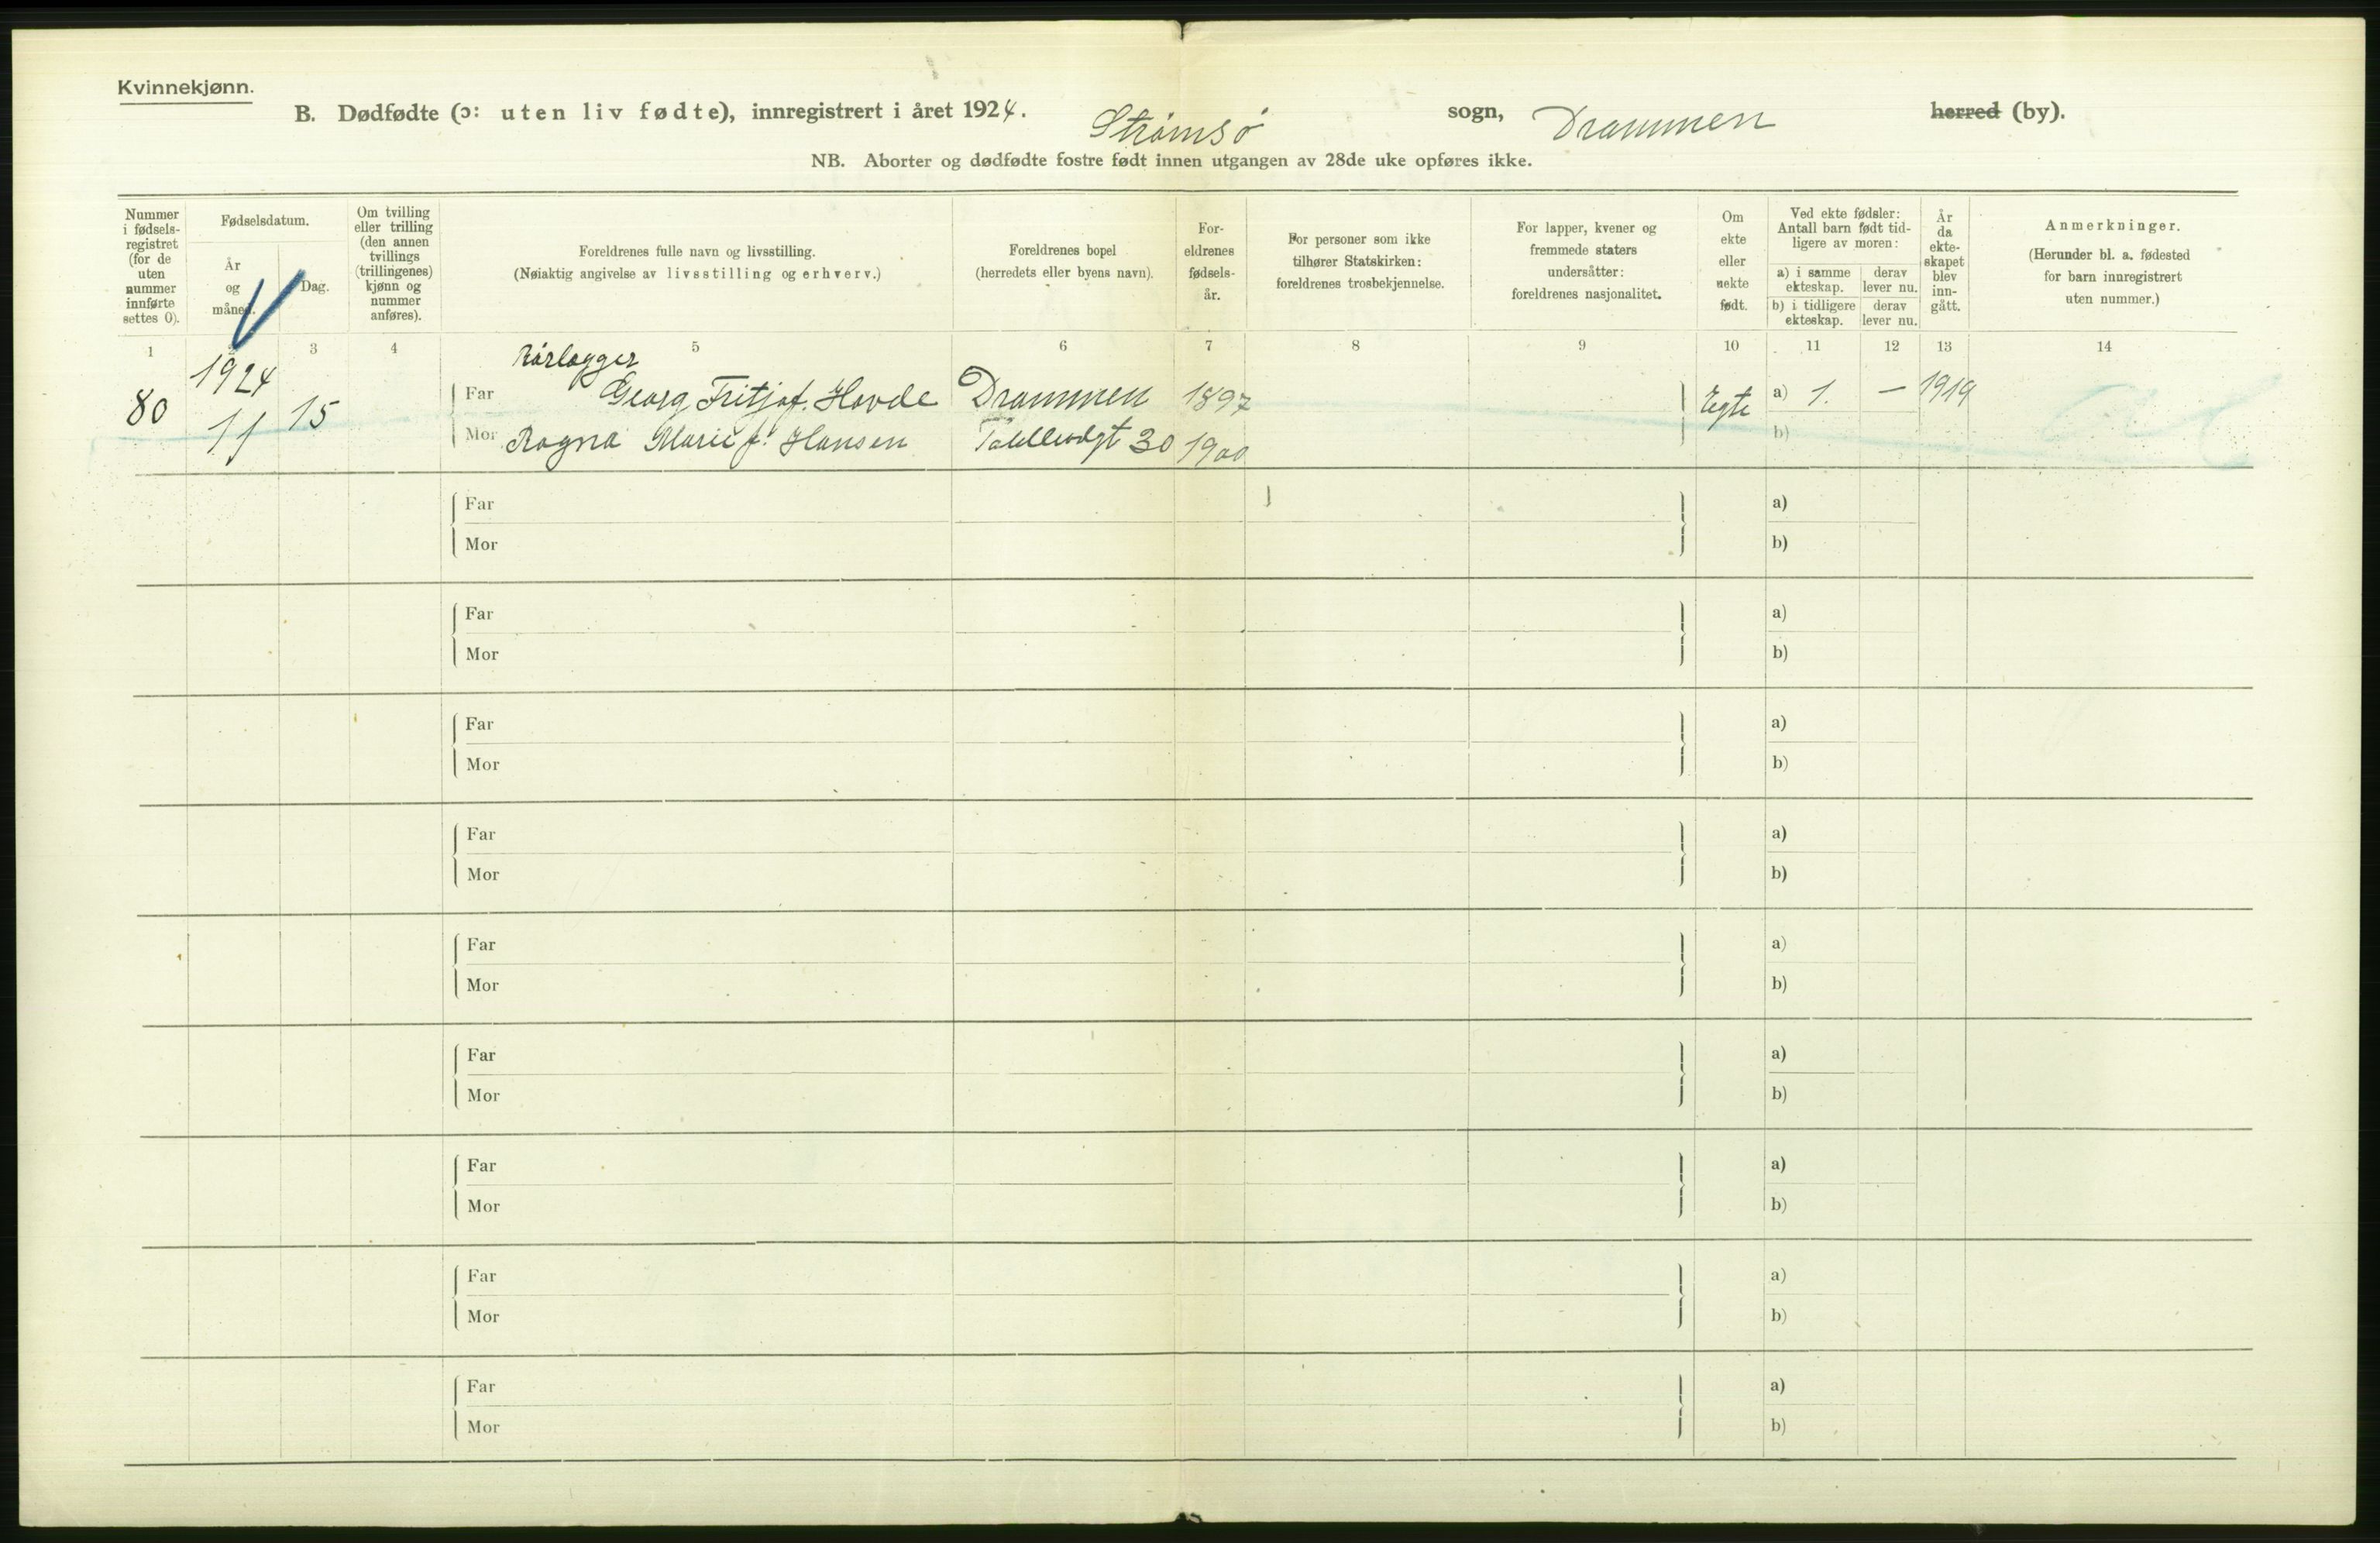 Kvinnekjønn.
B. Dødfødte (ɔ: uten liv fødte), innregistrert i året 1924. Strømsø sogn, Drammen herred (by).
NB. Aborter og dødfødte fostre født innen utgangen av 28de uke opføres ikke.
Nummer i fødsels-registret (for de uten nummer innførte settes 0).
Fødselsdatum.
År og måned.
Dag.
Om tvilling eller trilling (den annen tvillings (trillingenes) kjønn og nummer anføres).
Foreldrenes fulle navn og livsstilling.
(Nøiaktig angivelse av livsstilling og erhverv.)
Foreldrenes bopel
(herredets eller byens navn).
For-eldrenes fødsels-år.
For personer som ikke tilhører Statskirken: foreldrenes trosbekjennelse.
For lapper, kvener og fremmede staters undersåtter: foreldrenes nasjonalitet.
Om ekte eller uekte født.
Ved ekte fødsler: Antall barn født tid-ligere av moren:
a) i samme ekteskap.
derav lever nu.
b) i tidligere ekteskap.
derav lever nu.
År da ekte-skapet blev inn-gått.
Anmerkninger.
(Herunder bl. a. fødested for barn innregistrert uten nummer.)
1 3 4 5 6 7 8 9 10 11 12 13 14
Rørlegger
80 1924 11 15
Far Georg Fritjof Hovde Drammen 1897 Egte a) 1. — 1919
Mor Ragna Marie f. Hansen 30 1900 b)
Far a)
Mor b)
Far a)
Mor b)
Far a)
Mor b)
Far a)
Mor b)
Far a)
Mor b)
Far a)
Mor b)
Far a)
Mor b)
Far a)
Mor b)
Far a)
Mor b)